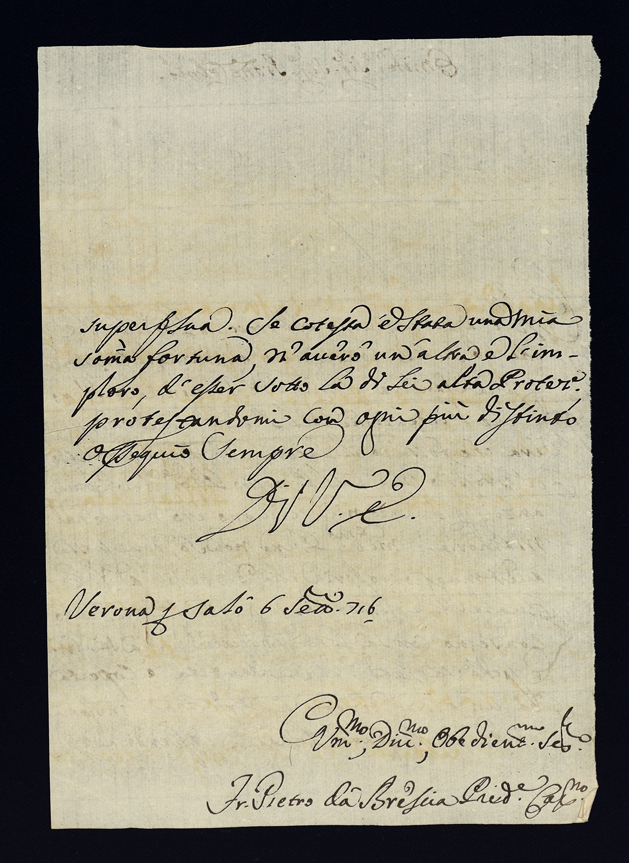 super sua. Se cotesta è stata una mia
soma fortuna, n'averò un'altra e l'im-
ploro, d'esser sotto la di Lei alta Protez.e
protestandomi con ogni più distinto
ossequio sempre
Di V. E.
Verona p Salò 6 Sett. 716
Vmmo, Dinmo, Obedientmo Sero
Fr. Pietro da Brescia Pred.e Capno